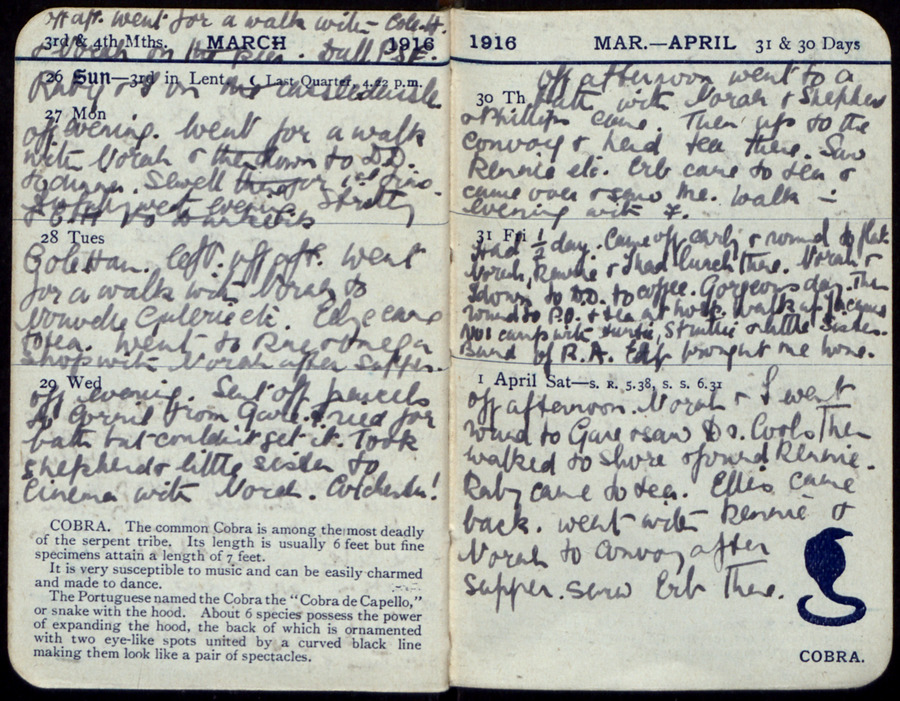 off aft. went for a walk with
3rd & 4th Mths. MARCH 1916
on the pier. Dull
26 Sun—3rd in Lent. ☾ Last Quarter, 4.22 p.m.
Raby & I on
27 Mon
off evening. Went for a walk
with Norah & then down to D.D.
Sewell
evening
28 Tues
off aft. went
for a walk with Norah to
Nouvelle Galerie etc. Edge came
to tea. Went to
shop with Norah after supper.
29 Wed
off evening. Sent off parcels
from Gare. Tried for
bath but couldn't get it. Took
Shepherd & little sister to
Cinema with Norah. Colchester!
COBRA. The common Cobra is among the most deadly
of the serpent tribe. Its length is usually 6 feet but fine
specimens attain a length of 7 feet.
It is very susceptible to music and can be easily charmed
and made to dance.
The Portuguese named the Cobra the "Cobra de Capello,"
or snake with the hood. About 6 species possess the power
of expanding the hood, the back of which is ornamented
with two eye-like spots united by a curved black line
making them look like a pair of spectacles.
1916 MAR.—APRIL 31 & 30 Days
off afternoon went to a
30 Th
bath with Norah & Shepherd
& Phillips came. Then up to the
convoy & had tea there. Saw
Rennie etc. Erb came to tea &
came over & saw me. Walk in
evening with F.
31 Fri
Had ½ day. Came off early & round to flat
Norah, Rennie & I had lunch there. Norah &
I down to D.D. to coffee. Gorgeous day. Then
round to P.O. & tea at hotel. walk up to
No 1 camp with & little Sister.
Band of R.A. brought me home.
1 April Sat—S. R. 5.38, S. S. 6.31
off afternoon. Norah & I went
round to Gare & saw Then
walked to shore & found Rennie.
Raby came to tea. Ellis came
back. went with Rennie &
Norah to Convoy after
supper. saw Erb there.
COBRA.